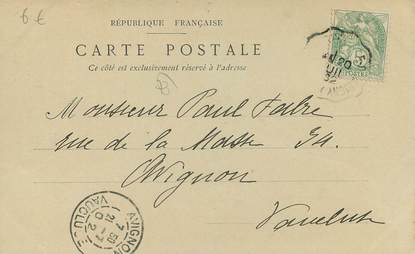 6 €
RÉPUBLIQUE FRANÇAISE
CARTE POSTALE
Ce côté est exclusivement réservé à l'adresse
5c
POSTES
Monsieur Paul Fabre
rue de la Masse 34.
Avignon
Vaucluse
AVIGNON
VAUCLUSE